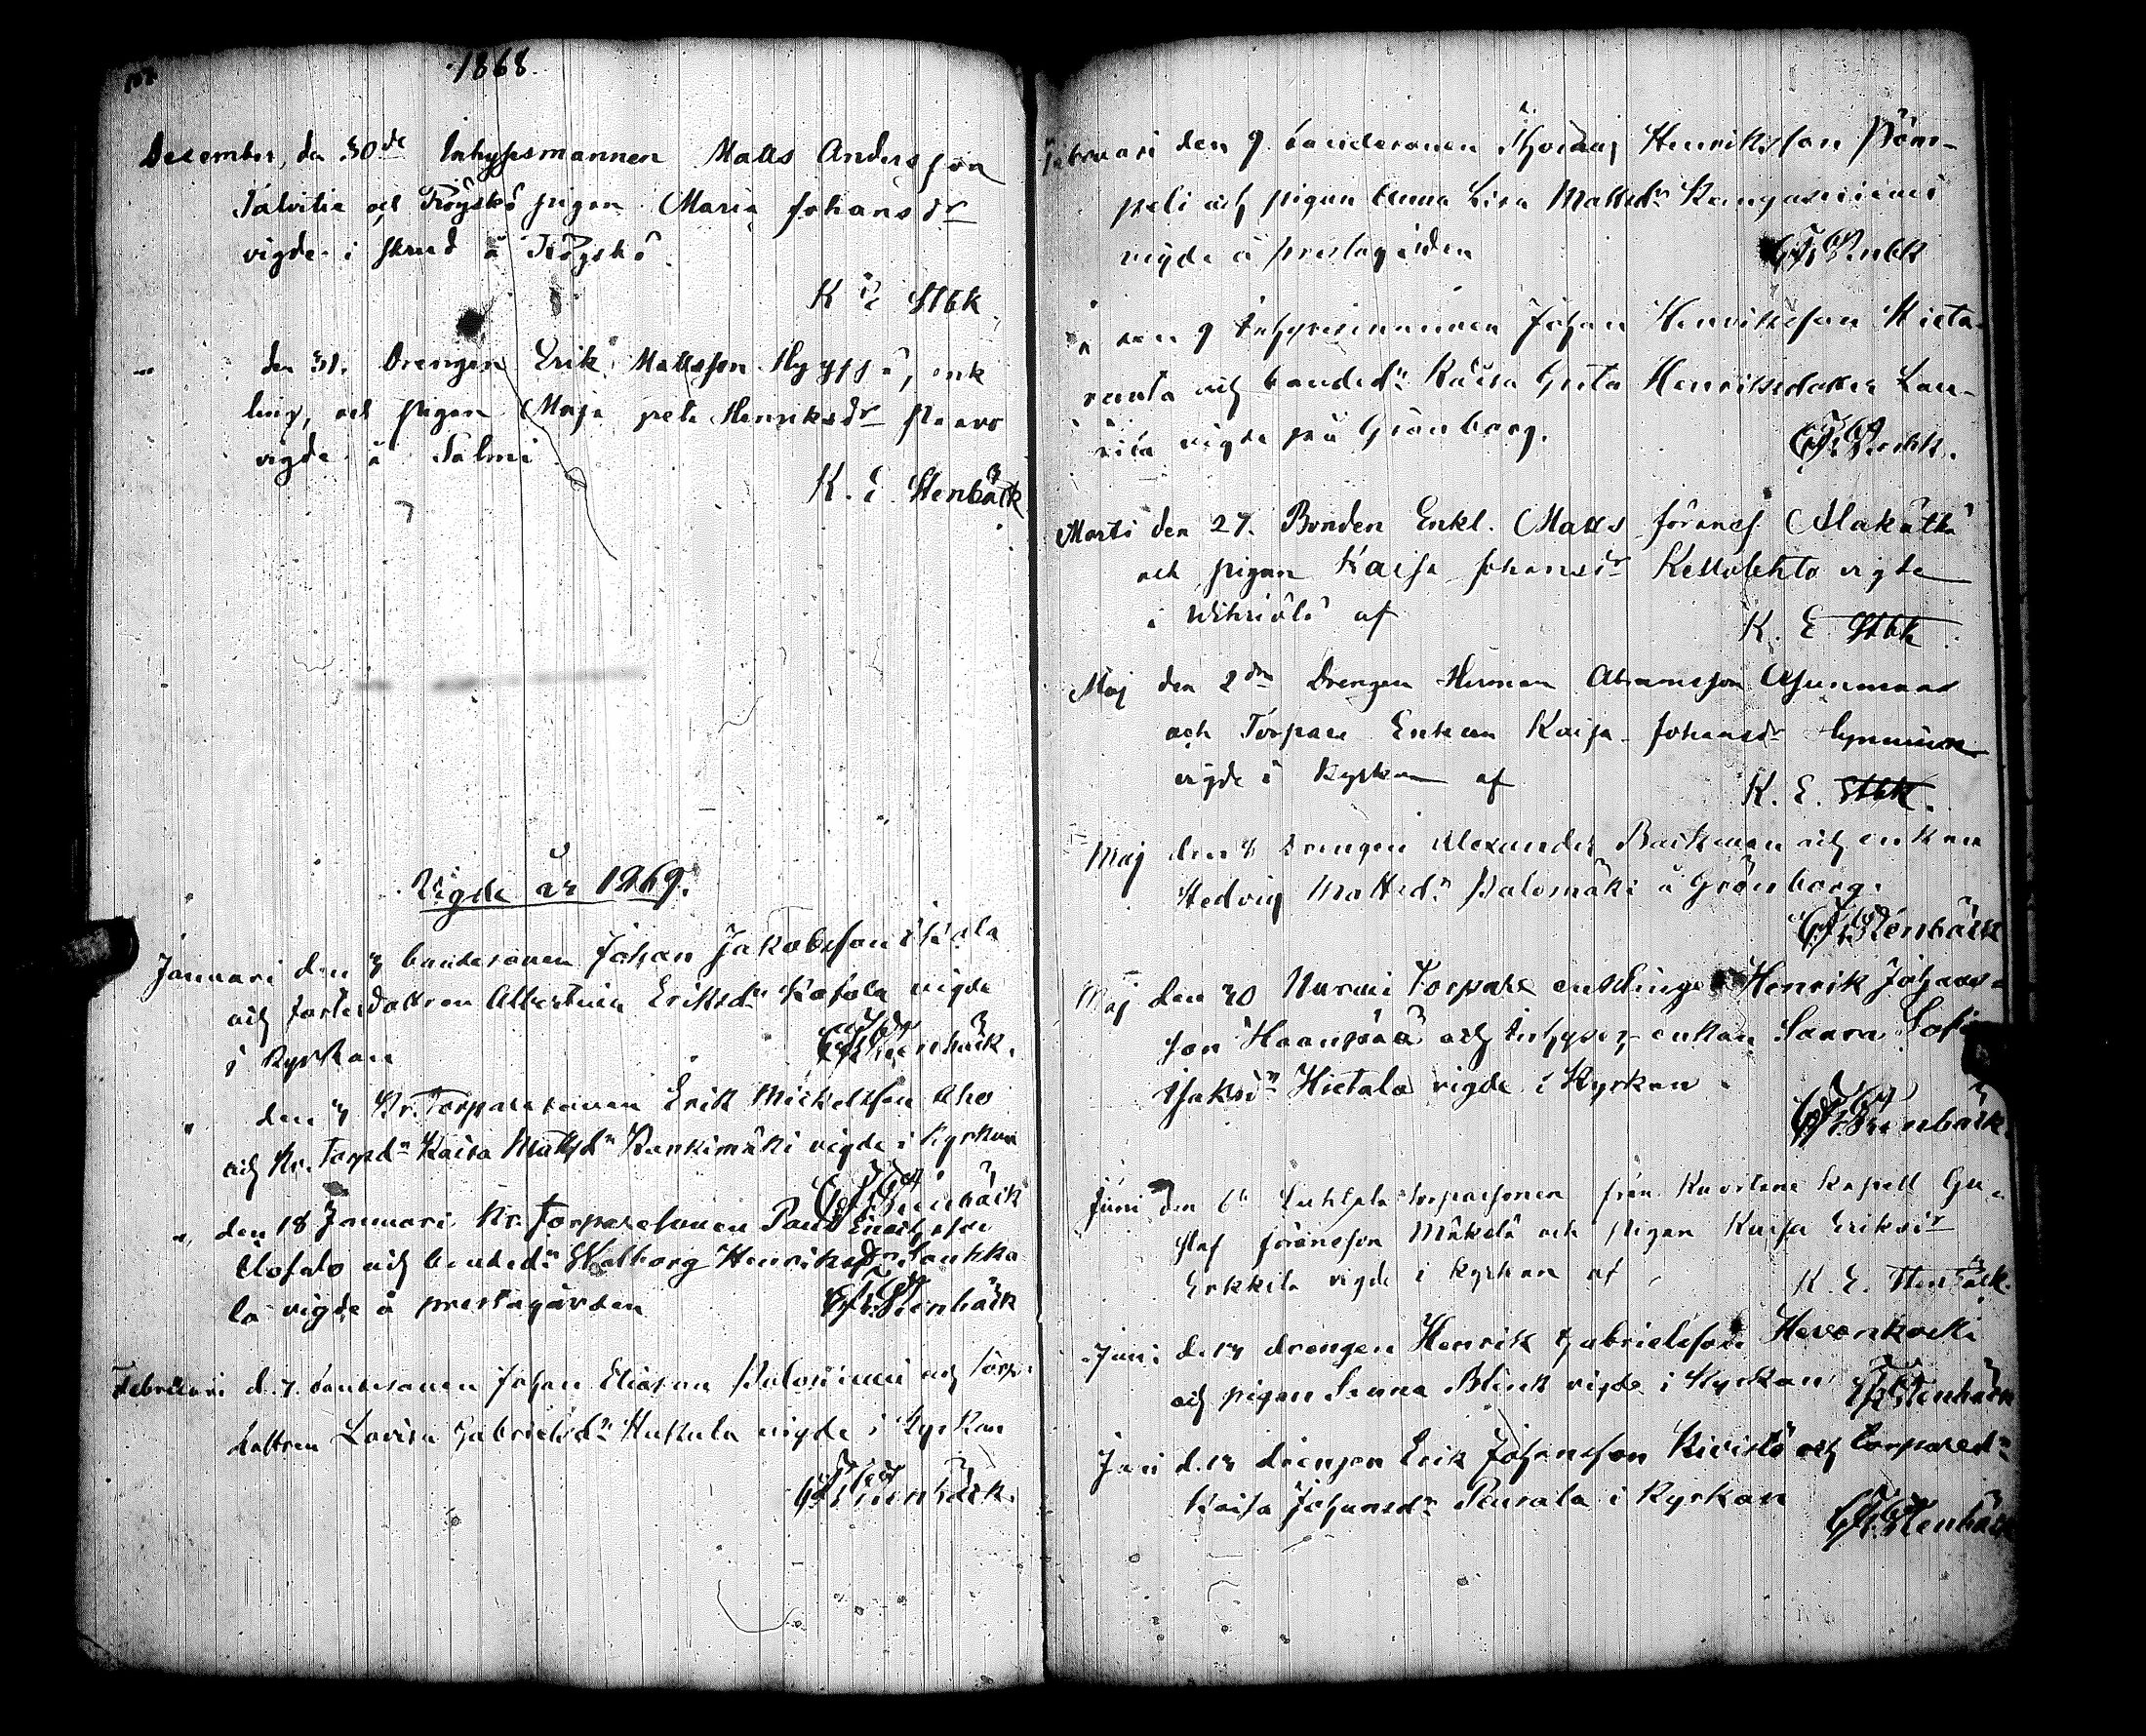 1868.
December, den 30de Inhysesmannen Matts Andersson
Talvitie och Röyskö pigan Maria Johansdr
vigde i skrud å Röyskö
K E Stbk
" den 31. Drengen Erik Mattsson Hyyppä, enk
ling, och pigan Maja Greta Henriksdr
vigde å Salmi
K. E. Stenbäck
Vigde år 1869.
Januari den 3 bondesonen Johan Jakobsson
och dottren Albertina Eriksdr Kosola vigde
i Kyrkan
Stenbäck.
" den 3 Kr. Torparesonen Erik Mickelsson Aho
och Kr. Torpdr Kaisa Mattsdr Rankimäki vigde i Kyrkan
Stenbäck
" den 18 Januari Kr. Torparesonen
och bonded. Walborg Henriksdr Saukko
la vigde å prestagården
Stenbäck
Februari d. 7. bondesonen Johan Eliasson Paloniemi och torp.
dottren Lovisa Gabrielsdr Hukula vigde i Kyrkan
Stenbäck.
Februari den 9. bondesonen Thomas Henriksson
peli och pigan Anna Lisa Mattsdr Kangasniemi
vigde å prestagården
Stenbk
" den 9 Inhysesmannen Johan Henriksson Hieta-
ranta och bonded. Kaisa Greta Henriksdotter Lau-
rila vigde på Grönborg.
Stenbk.
Marti den 27. Bonden Enkl. Matts Göransf. Alakätkä
och pigan Kaisa Johansdr Kellolehto vigde
i af
K. E Stbk.
Maj den 2dra Drengen Herman Abramsson Asunmaa
och Torpare Enkan Kaisa Johansdr
vigde i Kyrkan af
K. E. Stbk.
Maj den 8 drengen Alexander Backman och enkan
Hedvig Mattsdr Palomäki å Grönborg.
Stenbäck
Maj den 30 Nurmi Torpare enklingen Henrik Johans-
son Haanpää och Inhyses enkan Saara Sofia
Isaksdr Hietala vigde i Kyrkan
Stenbäck.
Juni den 6 torparsonen från Kuortane kapell Gu-
staf Göransson Mäkelä och pigan Kaisa Eriksdr
Erkkilä vigde i kyrkan af
K. E. Stenbäck.
Juni d. 13 drengen Henrik Gabrielsson Hevonkoski
och pigan Sanna Blink vigde i Kyrkan
Stenbäck
Juni d. 13 drengen Erik Johansson Kivistö och torpared.
Kaisa Johansdr Peurala i Kyrkan
Stenbäck